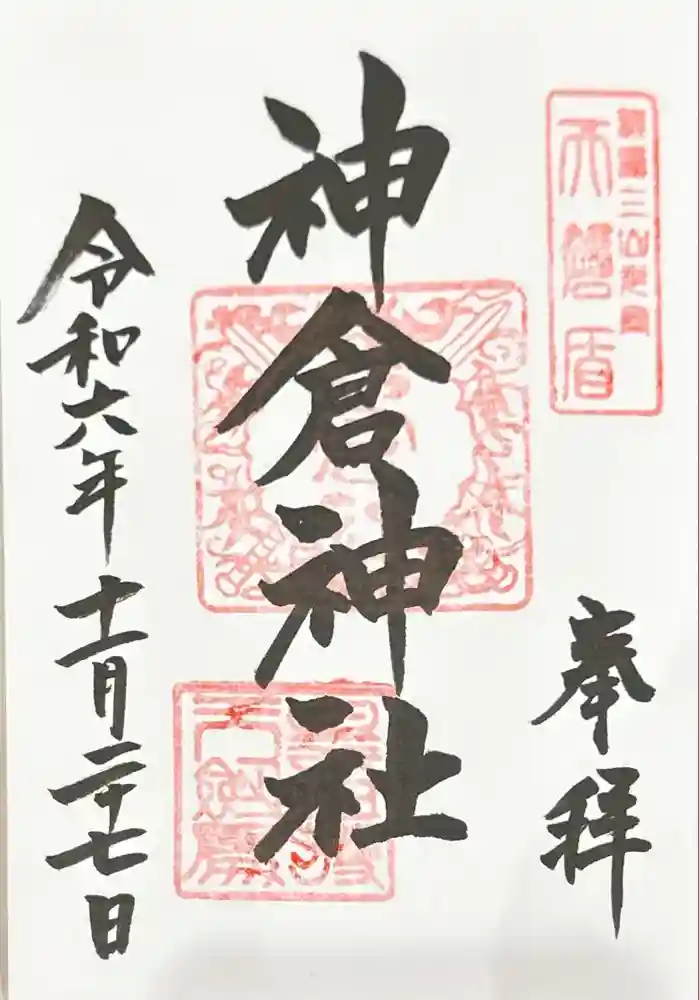 熊野三山
天磐盾
奉拝
神倉神社
令和六年十一月二十七日